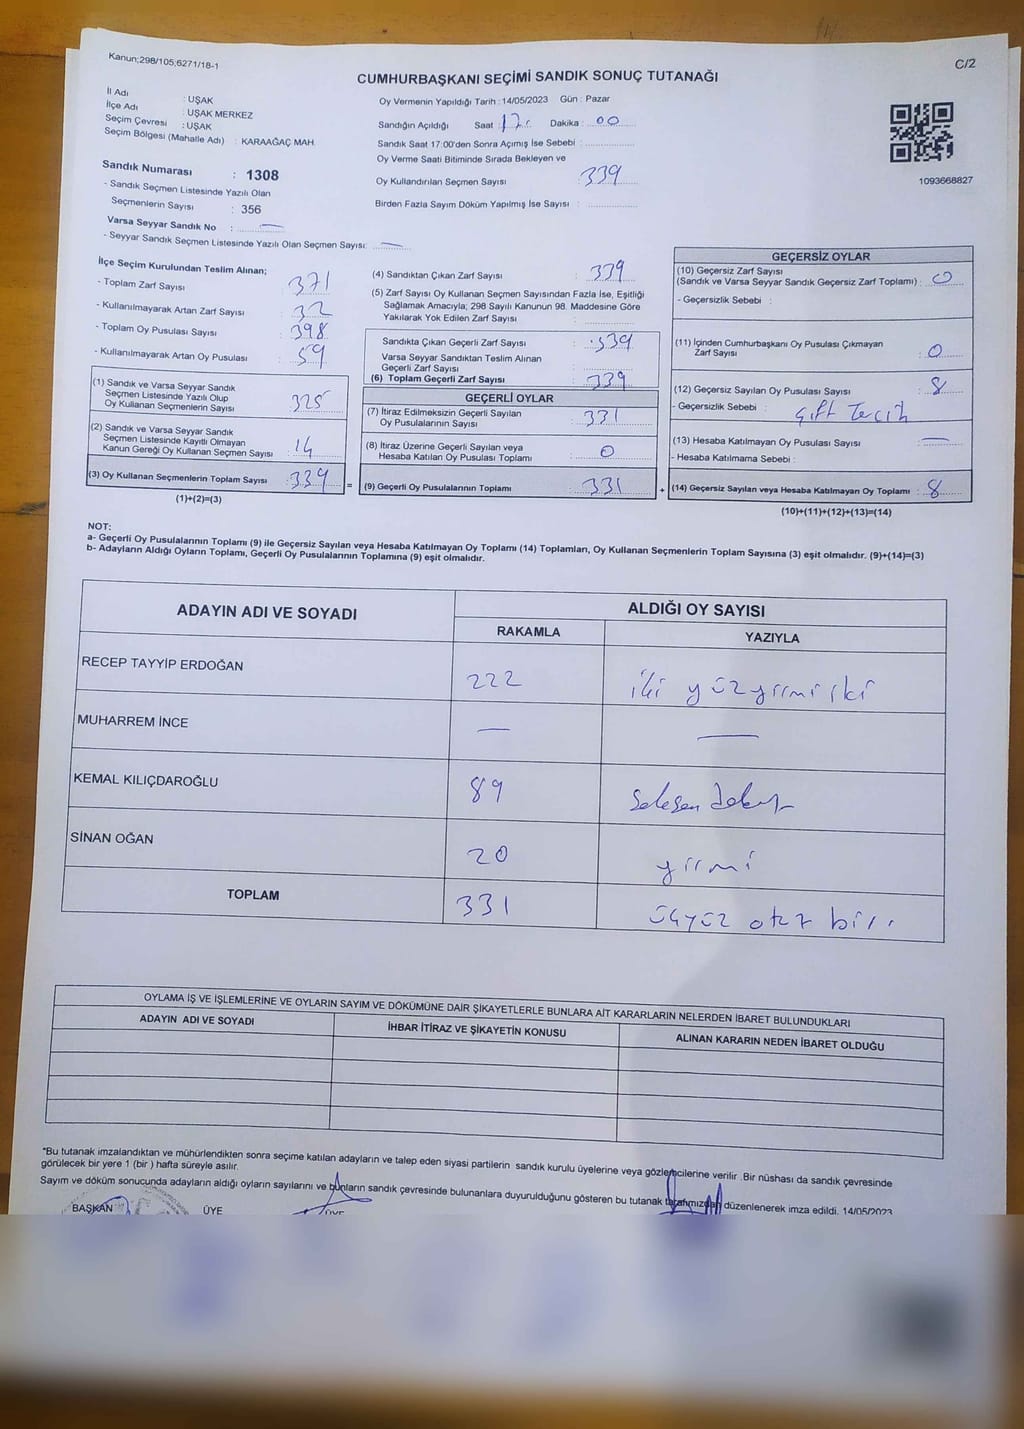 Kanun;298/105;6271/18-1
C/2
CUMHURBAŞKANI SEÇİMİ SANDIK SONUÇ TUTANAĞI
İl Adı : UŞAK
İlçe Adı : UŞAK MERKEZ
Seçim Çevresi : UŞAK
Seçim Bölgesi (Mahalle Adı) : KARAAĞAÇ MAH.
Oy Vermenin Yapıldığı Tarih : 14/05/2023 Gün : Pazar
Sandığın Açıldığı Saat : 17 Dakika : 00
Sandık Saat 17:00'den Sonra Açımış İse Sebebi :
Oy Verme Saati Bitiminde Sırada Bekleyen ve
Oy Kullandırılan Seçmen Sayısı : 339
Birden Fazla Sayım Döküm Yapılmış İse Sayısı :
1093668827
Sandık Numarası : 1308
- Sandık Seçmen Listesinde Yazılı Olan
Seçmenlerin Sayısı : 356
Varsa Seyyar Sandık No : —
- Seyyar Sandık Seçmen Listesinde Yazılı Olan Seçmen Sayısı: —
İlçe Seçim Kurulundan Teslim Alınan;
- Toplam Zarf Sayısı : 371
- Kullanılmayarak Artan Zarf Sayısı : 32
- Toplam Oy Pusulası Sayısı : 398
- Kullanılmayarak Artan Oy Pusulası : 59
(1) Sandık ve Varsa Seyyar Sandık
Seçmen Listesinde Yazılı Olup
Oy Kullanan Seçmenlerin Sayısı : 325
(2) Sandık ve Varsa Seyyar Sandık
Seçmen Listesinde Kayıtlı Olmayan
Kanun Gereği Oy Kullanan Seçmen Sayısı : 14
(3) Oy Kullanan Seçmenlerin Toplam Sayısı : 339
(1)+(2)=(3)
(4) Sandıktan Çıkan Zarf Sayısı : 339
(5) Zarf Sayısı Oy Kullanan Seçmen Sayısından Fazla İse, Eşitliği
Sağlamak Amacıyla; 298 Sayılı Kanunun 98. Maddesine Göre
Yakılarak Yok Edilen Zarf Sayısı :
Sandıkta Çıkan Geçerli Zarf Sayısı : 339
Varsa Seyyar Sandıktan Teslim Alınan
Geçerli Zarf Sayısı :
(6) Toplam Geçerli Zarf Sayısı : 339
GEÇERLİ OYLAR
(7) İtiraz Edilmeksizin Geçerli Sayılan
Oy Pusulalarının Sayısı : 331
(8) İtiraz Üzerine Geçerli Sayılan veya
Hesaba Katılan Oy Pusulası Toplamı : 0
= (9) Geçerli Oy Pusulalarının Toplamı : 331
GEÇERSİZ OYLAR
(10) Geçersiz Zarf Sayısı
(Sandık ve Varsa Seyyar Sandık Geçersiz Zarf Toplamı) : 0
- Geçersizlik Sebebi :
(11) İçinden Cumhurbaşkanı Oy Pusulası Çıkmayan
Zarf Sayısı : 0
(12) Geçersiz Sayılan Oy Pusulası Sayısı : 8
- Geçersizlik Sebebi : Çift Tercih
(13) Hesaba Katılmayan Oy Pusulası Sayısı : —
- Hesaba Katılmama Sebebi :
+ (14) Geçersiz Sayılan veya Hesaba Katılmayan Oy Toplamı : 8
(10)+(11)+(12)+(13)=(14)
NOT:
a- Geçerli Oy Pusulalarının Toplamı (9) ile Geçersiz Sayılan veya Hesaba Katılmayan Oy Toplamı (14) Toplamları, Oy Kullanan Seçmenlerin Toplam Sayısına (3) eşit olmalıdır. (9)+(14)=(3)
b- Adayların Aldığı Oyların Toplamı, Geçerli Oy Pusulalarının Toplamına (9) eşit olmalıdır.
ADAYIN ADI VE SOYADI ALDIĞI OY SAYISI
RAKAMLA YAZIYLA
RECEP TAYYİP ERDOĞAN 222 iki yüz yirmi iki
MUHARREM İNCE — —
KEMAL KILIÇDAROĞLU 89 seksen dokuz
SİNAN OĞAN 20 yirmi
TOPLAM 331 üçyüz otuz bir
OYLAMA İŞ VE İŞLEMLERİNE VE OYLARIN SAYIM VE DÖKÜMÜNE DAİR ŞİKAYETLERLE BUNLARA AİT KARARLARIN NELERDEN İBARET BULUNDUKLARI
ADAYIN ADI VE SOYADI İHBAR İTİRAZ VE ŞİKAYETİN KONUSU ALINAN KARARIN NEDEN İBARET OLDUĞU
*Bu tutanak imzalandıktan ve mühürlendikten sonra seçime katılan adayların ve talep eden siyasi partilerin sandık kurulu üyelerine veya gözlemcilerine verilir. Bir nüshası da sandık çevresinde
görülecek bir yere 1 (bir ) hafta süreyle asılır.
Sayım ve döküm sonucunda adayların aldığı oyların sayılarını ve bunların sandık çevresinde bulunanlara duyurulduğunu gösteren bu tutanak tarafımızdan düzenlenerek imza edildi. 14/05/2023
BAŞKAN ÜYE ÜYE